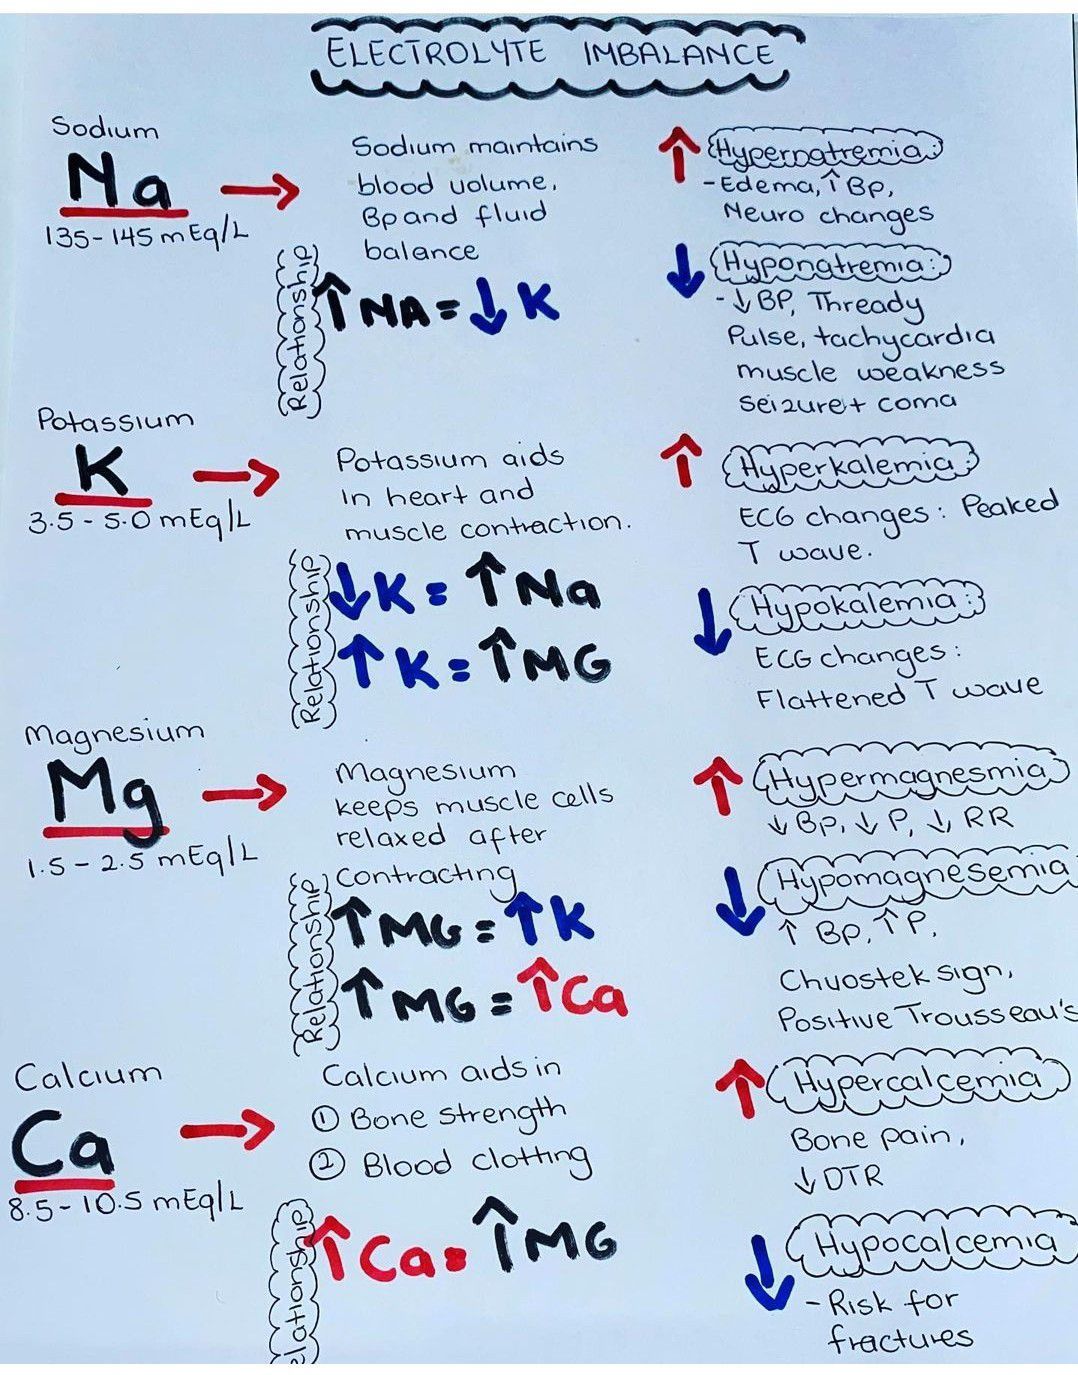 ELECTROLYTE IMBALANCE
Sodium
Na
135-145 mEq/L
Sodium maintains
blood volume,
Bp and fluid
balance
Relationship
↑ NA = ↓ K
↑ Hypernatremia:
- Edema, ↑ Bp,
Neuro changes
↓ Hyponatremia:
- ↓ BP, Thready
Pulse, tachycardia
muscle weakness
Seizure + coma
Potassium
K
3.5 - 5.0 mEq/L
Potassium aids
in heart and
muscle contraction.
Relationship
↓ K = ↑ Na
↑ K = ↑ MG
↑ Hyperkalemia:
ECG changes: Peaked
T wave.
↓ Hypokalemia:
ECG changes:
Flattened T wave
Magnesium
Mg
1.5 - 2.5 mEq/L
Magnesium
keeps muscle cells
relaxed after
contracting
Relationship
↑ MG = ↑ K
↑ MG = ↑ Ca
↑ Hypermagnesmia
↓ Bp, ↓ P, ↓ RR
↓ Hypomagnesemia
↑ Bp, ↑ P,
Chvostek sign,
Positive Trousseau's
Calcium
Ca
8.5 - 10.5 mEq/L
Calcium aids in
① Bone strength
② Blood clotting
Relationship
↑ Ca = ↑ MG
↑ Hypercalcemia
Bone pain,
↓ DTR
↓ Hypocalcemia
- Risk for
fractures